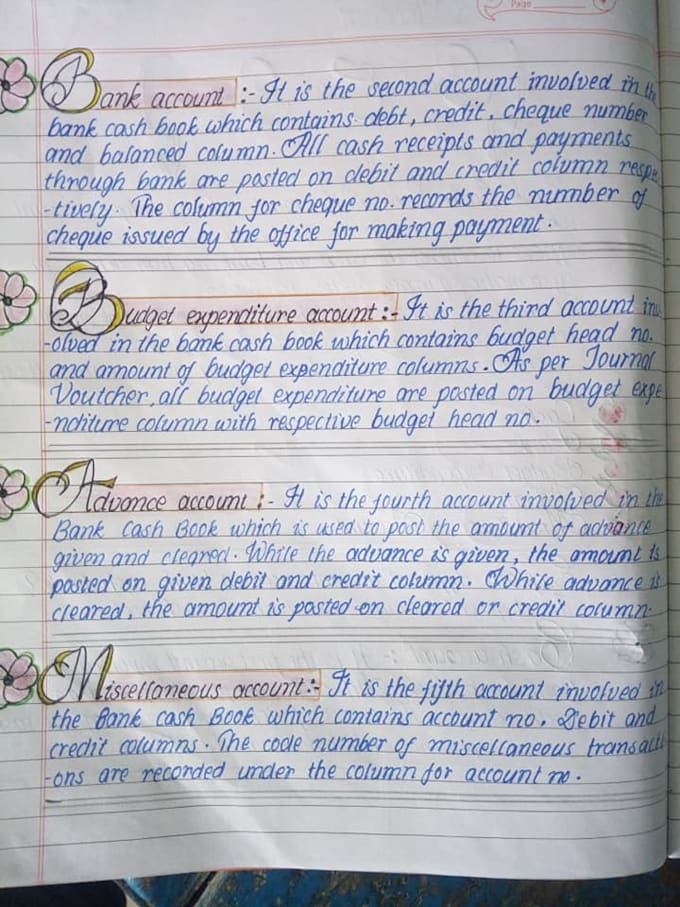 Page
Bank account :- It is the second account involved in the
bank cash book which contains debt, credit, cheque number
and balanced column. All cash receipts and payments
through bank are posted on debit and credit column respe
-tively. The column for cheque no. records the number of
cheque issued by the office for making payment.
Budget expenditure account :- It is the third account inv
-olved in the bank cash book which contains budget head no.
and amount of budget expenditure columns. As per Journal
Voutcher, all budget expenditure are posted on budget expe
-nditure column with respective budget head no.
Advance account :- It is the fourth account involved in the
Bank Cash Book which is used to post the amount of advance
given and cleared. While the advance is given, the amount is
posted on given debit and credit column. While advance is
cleared, the amount is posted on cleared or credit column.
Miscellaneous account :- It is the fifth account involved in
the Bank cash Book which contains account no. Debit and
credit columns. The code number of miscellaneous transacti
-ons are recorded under the column for account no.